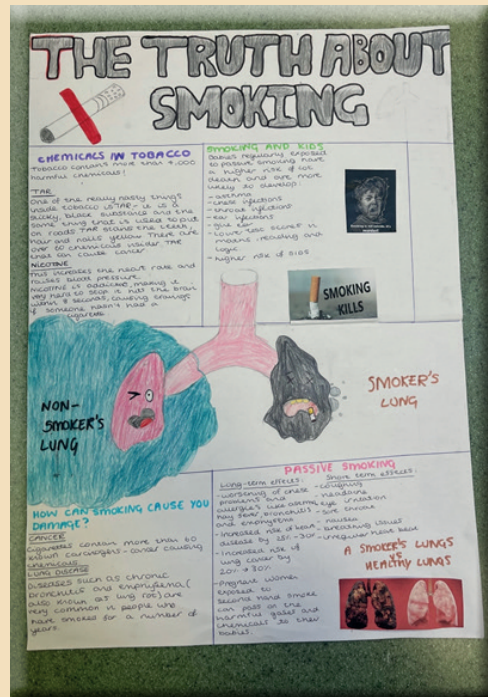 THE TRUTH ABOUT
SMOKING
CHEMICALS IN TOBACCO
Tobacco contains more than 4,000
harmful chemicals!
TAR
One of the really nasty things
inside tobacco is TAR - it is a
sticky, black substance and the
same thing that is used to put
on roads. TAR stains the teeth,
hair and nails yellow. There are
over 60 chemicals inside TAR
that can cause cancer
NICOTINE
This increases the heart rate and
raises blood pressure.
Nicotine is addictive, making it
very hard to stop. It hits the brain
within 8 seconds, causing cravings
if someone hasn't had a
cigarette.
SMOKING AND KIDS
Babies regularly exposed
to passive smoking have
a higher risk of cot
death and are more
likely to develop:
- asthma
- chest infections
- throat infections
- ear infections
- glue ear
- Lower test scores in
maths, reading and
logic
- higher risk of SIDS
SMOKING
KILLS
NON-
SMOKER'S
LUNG
SMOKER'S
LUNG
HOW CAN SMOKING CAUSE YOU
DAMAGE?
CANCER
Cigarettes contain more than 60
known carcinogens - cancer causing
chemicals
LUNG DISEASE
Diseases such as chronic
bronchitis and emphysema (
also known as lung rot) are
very common in people who
have smoked for a number of
years.
PASSIVE SMOKING
Long-term effects:
- worsening of chest
problems and
allergies like asthma,
hay fever, bronchitis
and emphysema
- Increased risk of heart
disease by 25% - 30%
- Increased risk of
lung cancer by
20% - 30%
- Pregnant women
exposed to
second hand smoke
can pass on the
harmful gases and
chemicals to their
babies.
Short term effects:
- coughing
- headache
- eye irritation
- sore throat
- nausea
- breathing issues
- irregular heart beat
A SMOKER'S LUNGS
VS
HEALTHY LUNGS